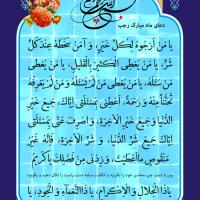 دعای ماه مبارک رجب
یا مَنْ اَرْجُوهُ لِکُلِّ خَیْرٍ، وَ آمَنُ سَخَطَهُ عِنْدَ کُلِّ
شَرٍّ، یا مَنْ یُعْطِی الْکَثیرَ بِالْقَلیلِ، یا مَنْ یُعْطی
مَنْ سَئَلَهُ، یا مَنْ یُعْطی مَنْ لَمْ یَسْئَلْهُ وَ مَنْ لَمْ یَعْرِفْهُ
تَحَنُّناً مِنْهُ وَ رَحْمَةً، اَعْطِنی بِمَسْئَلَتی اِیّاکَ، جَمیعَ خَیْرِ
الدُّنْیا وَ جَمیعَ خَیْرِ الْآخِرَةِ، وَ اصْرِفْ عَنّی بِمَسْئَلَتی
اِیّاکَ جَمیعَ شَرِّ الدُّنْیا، وَ شَرِّ الْآخِرَةِ، فَاِنَّهُ غَیْرُ
مَنْقُوصٍ ما اَعْطَیْتَ، وَ زِدْنی مِنْ فَضْلِکَ یا کَریمُ
یا ذَا الْجَلالِ وَ الْاِکْرامِ، یا ذَا النَّعْماءِ وَ الْجُودِ، یا